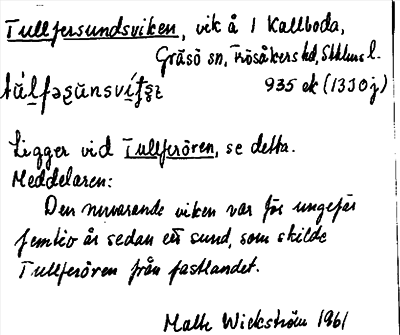 Tullfersundsviken, vik å 1 Kallboda,
Gräsö sn, Frösåkers hd, Sthlms l.
935 ek (13J0j)
Ligger vid Tullferören, se detta.
Meddelaren:
Den nuvarande viken var för ungefär
femtio år sedan ett sund, som skilde
Tullferören från fastlandet.
Malte Wickström 1961